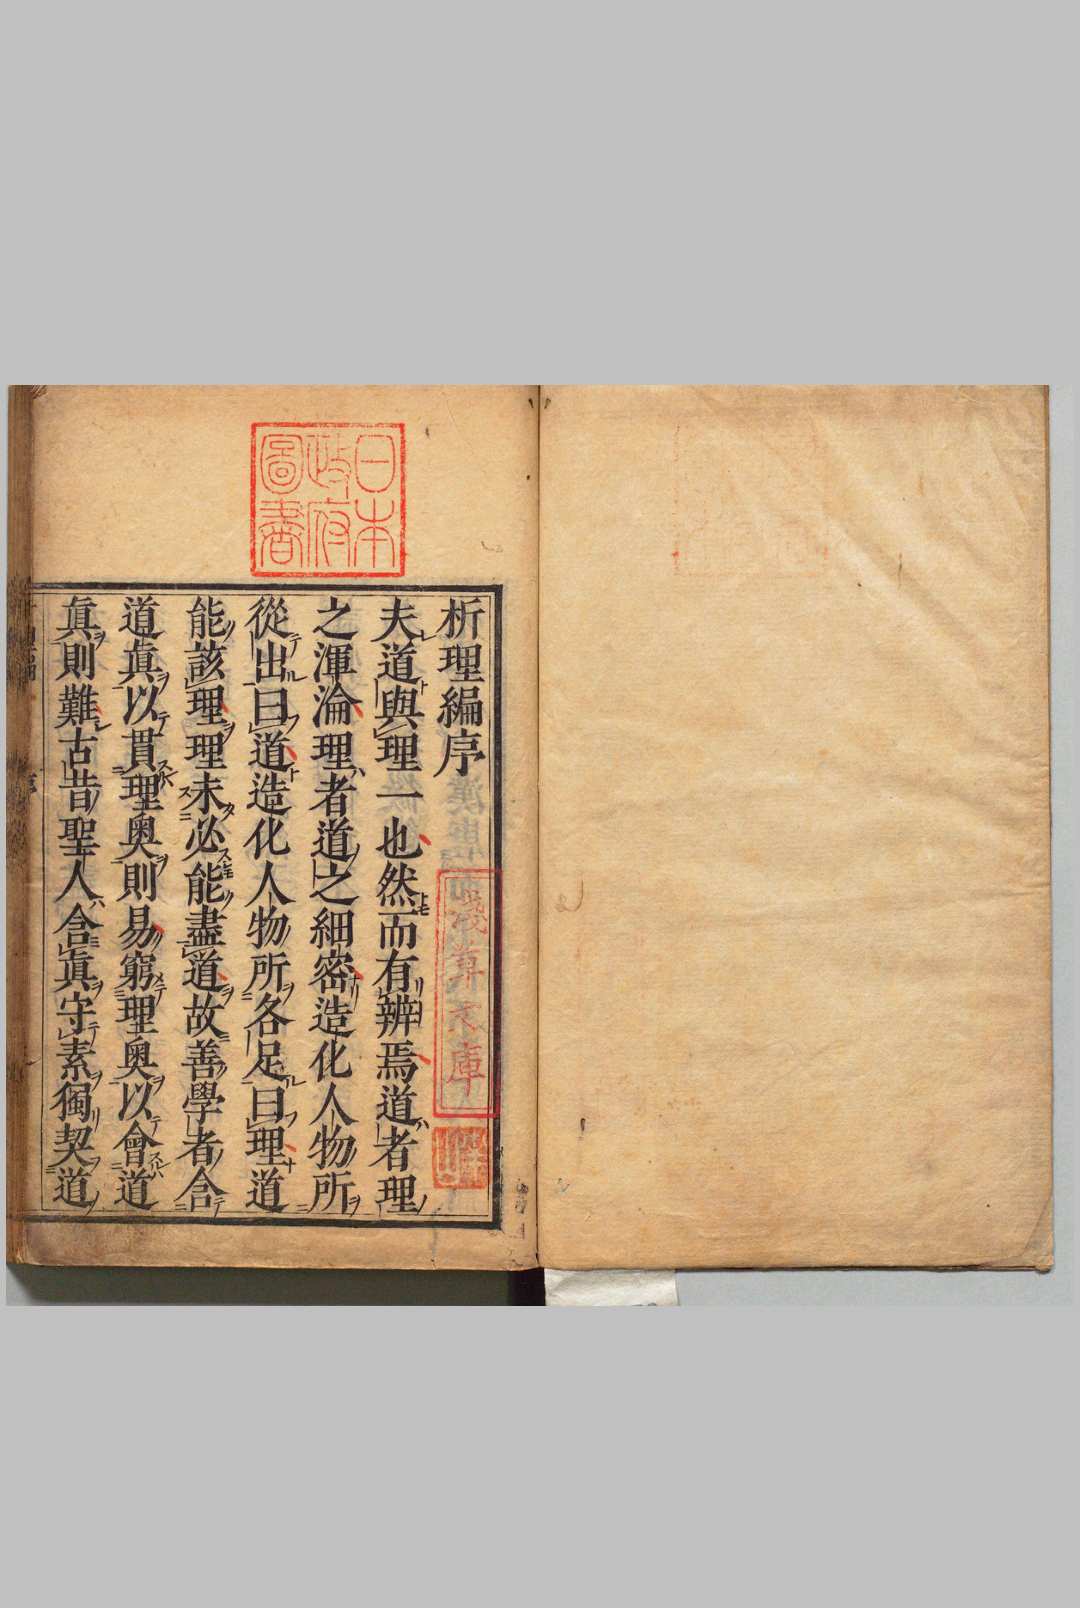 日本
政府
圖書
析理編序
夫道與理一也然而有辨焉道者理
之渾淪理者道之細密造化人物所
從出曰道造化人物所各足曰理道
能該理理未必能盡道故善學者合
道眞以貫理奥則易窮理奥以會道
眞則難古昔聖人含眞守素獨契道